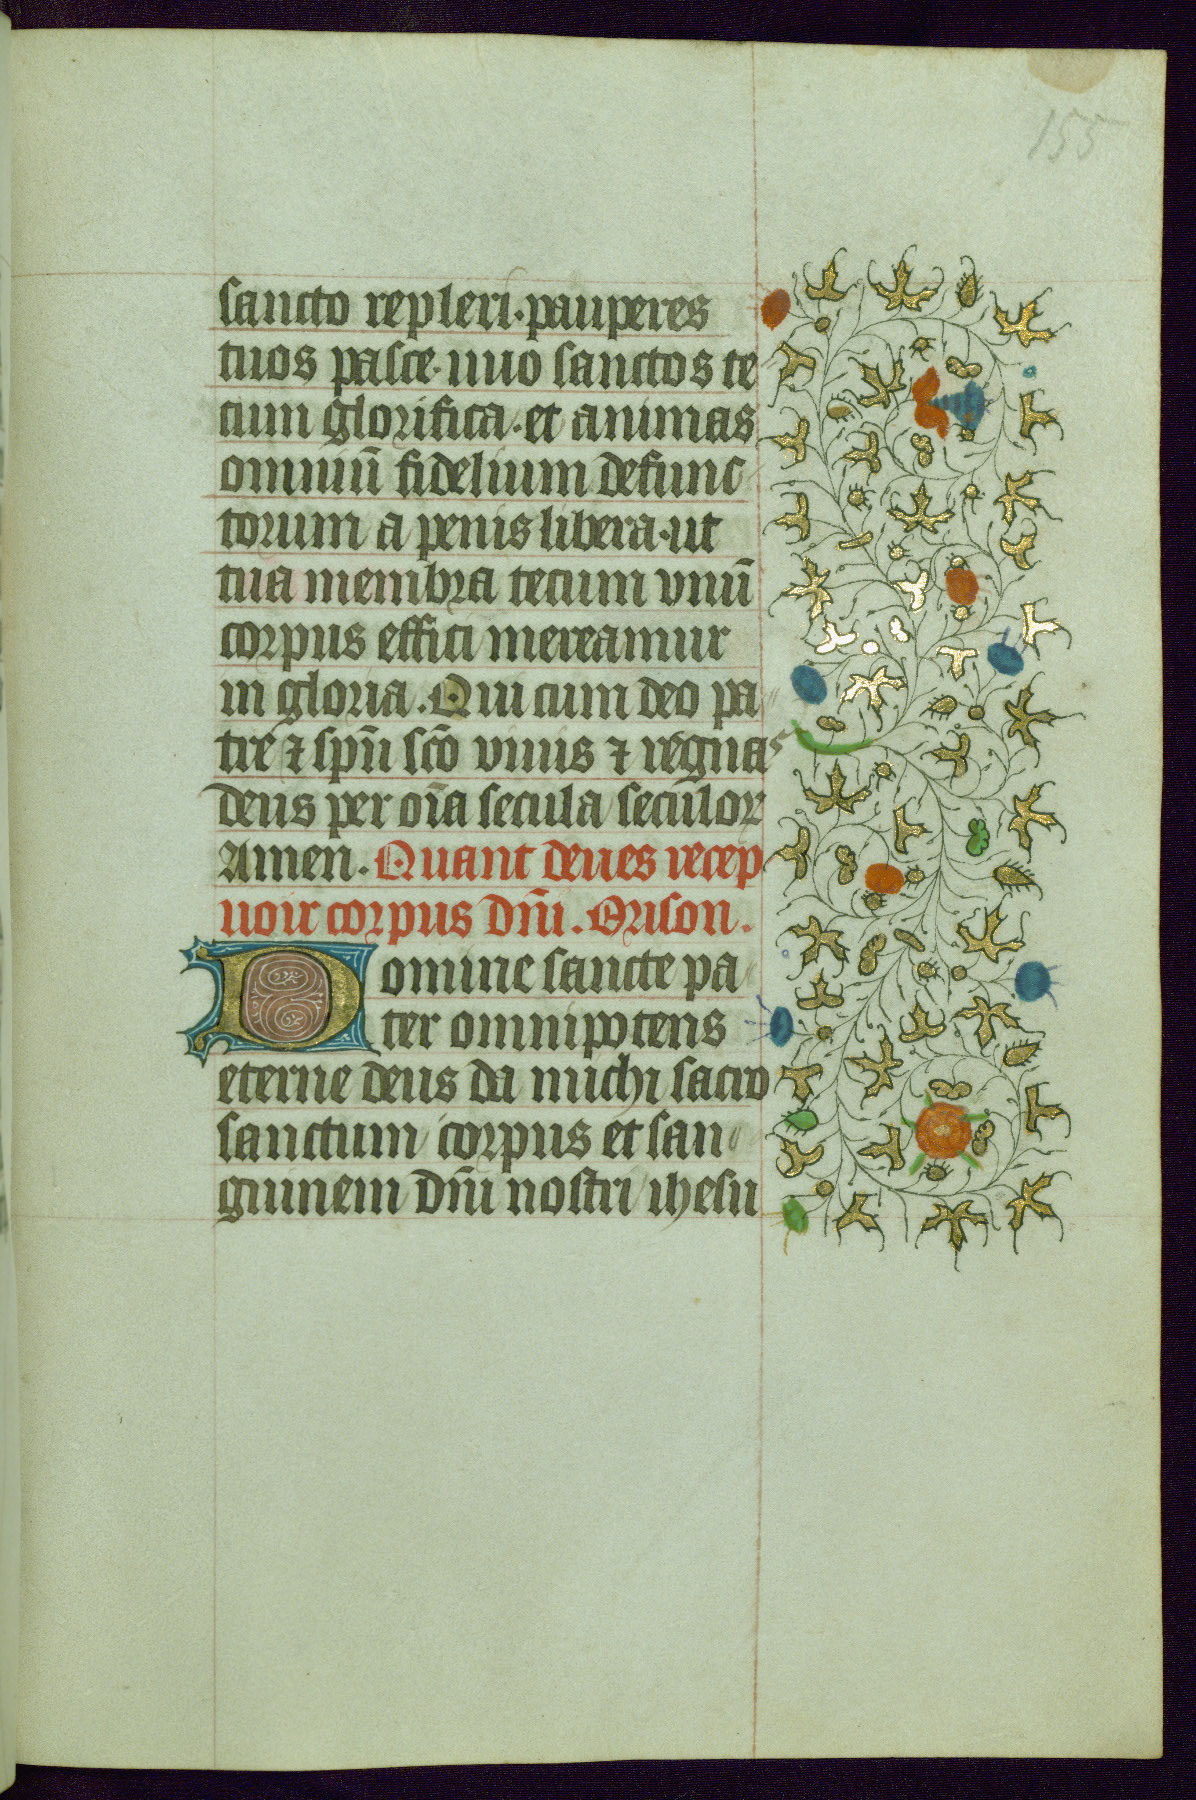 155
sancto repleri·pauperes
tuos pasce·uiuo sanctos te
cum glorifica·et animas
omniū fidelium defunc
torum a penis libera·ut
tua membra tecum vnū
corpus effici mereamur
in gloria. Qui cum deo pa
tre ⁊ spū scō viuis ⁊ regnas
deus per oīa secula seculor
Amen. Quant deues recep
uoir corpus dñi. Orison.
Domine sancte pa
ter omnipotens
eterne deus da michi sacro
sanctum corpus et san
guinem dñi nostri ihesu